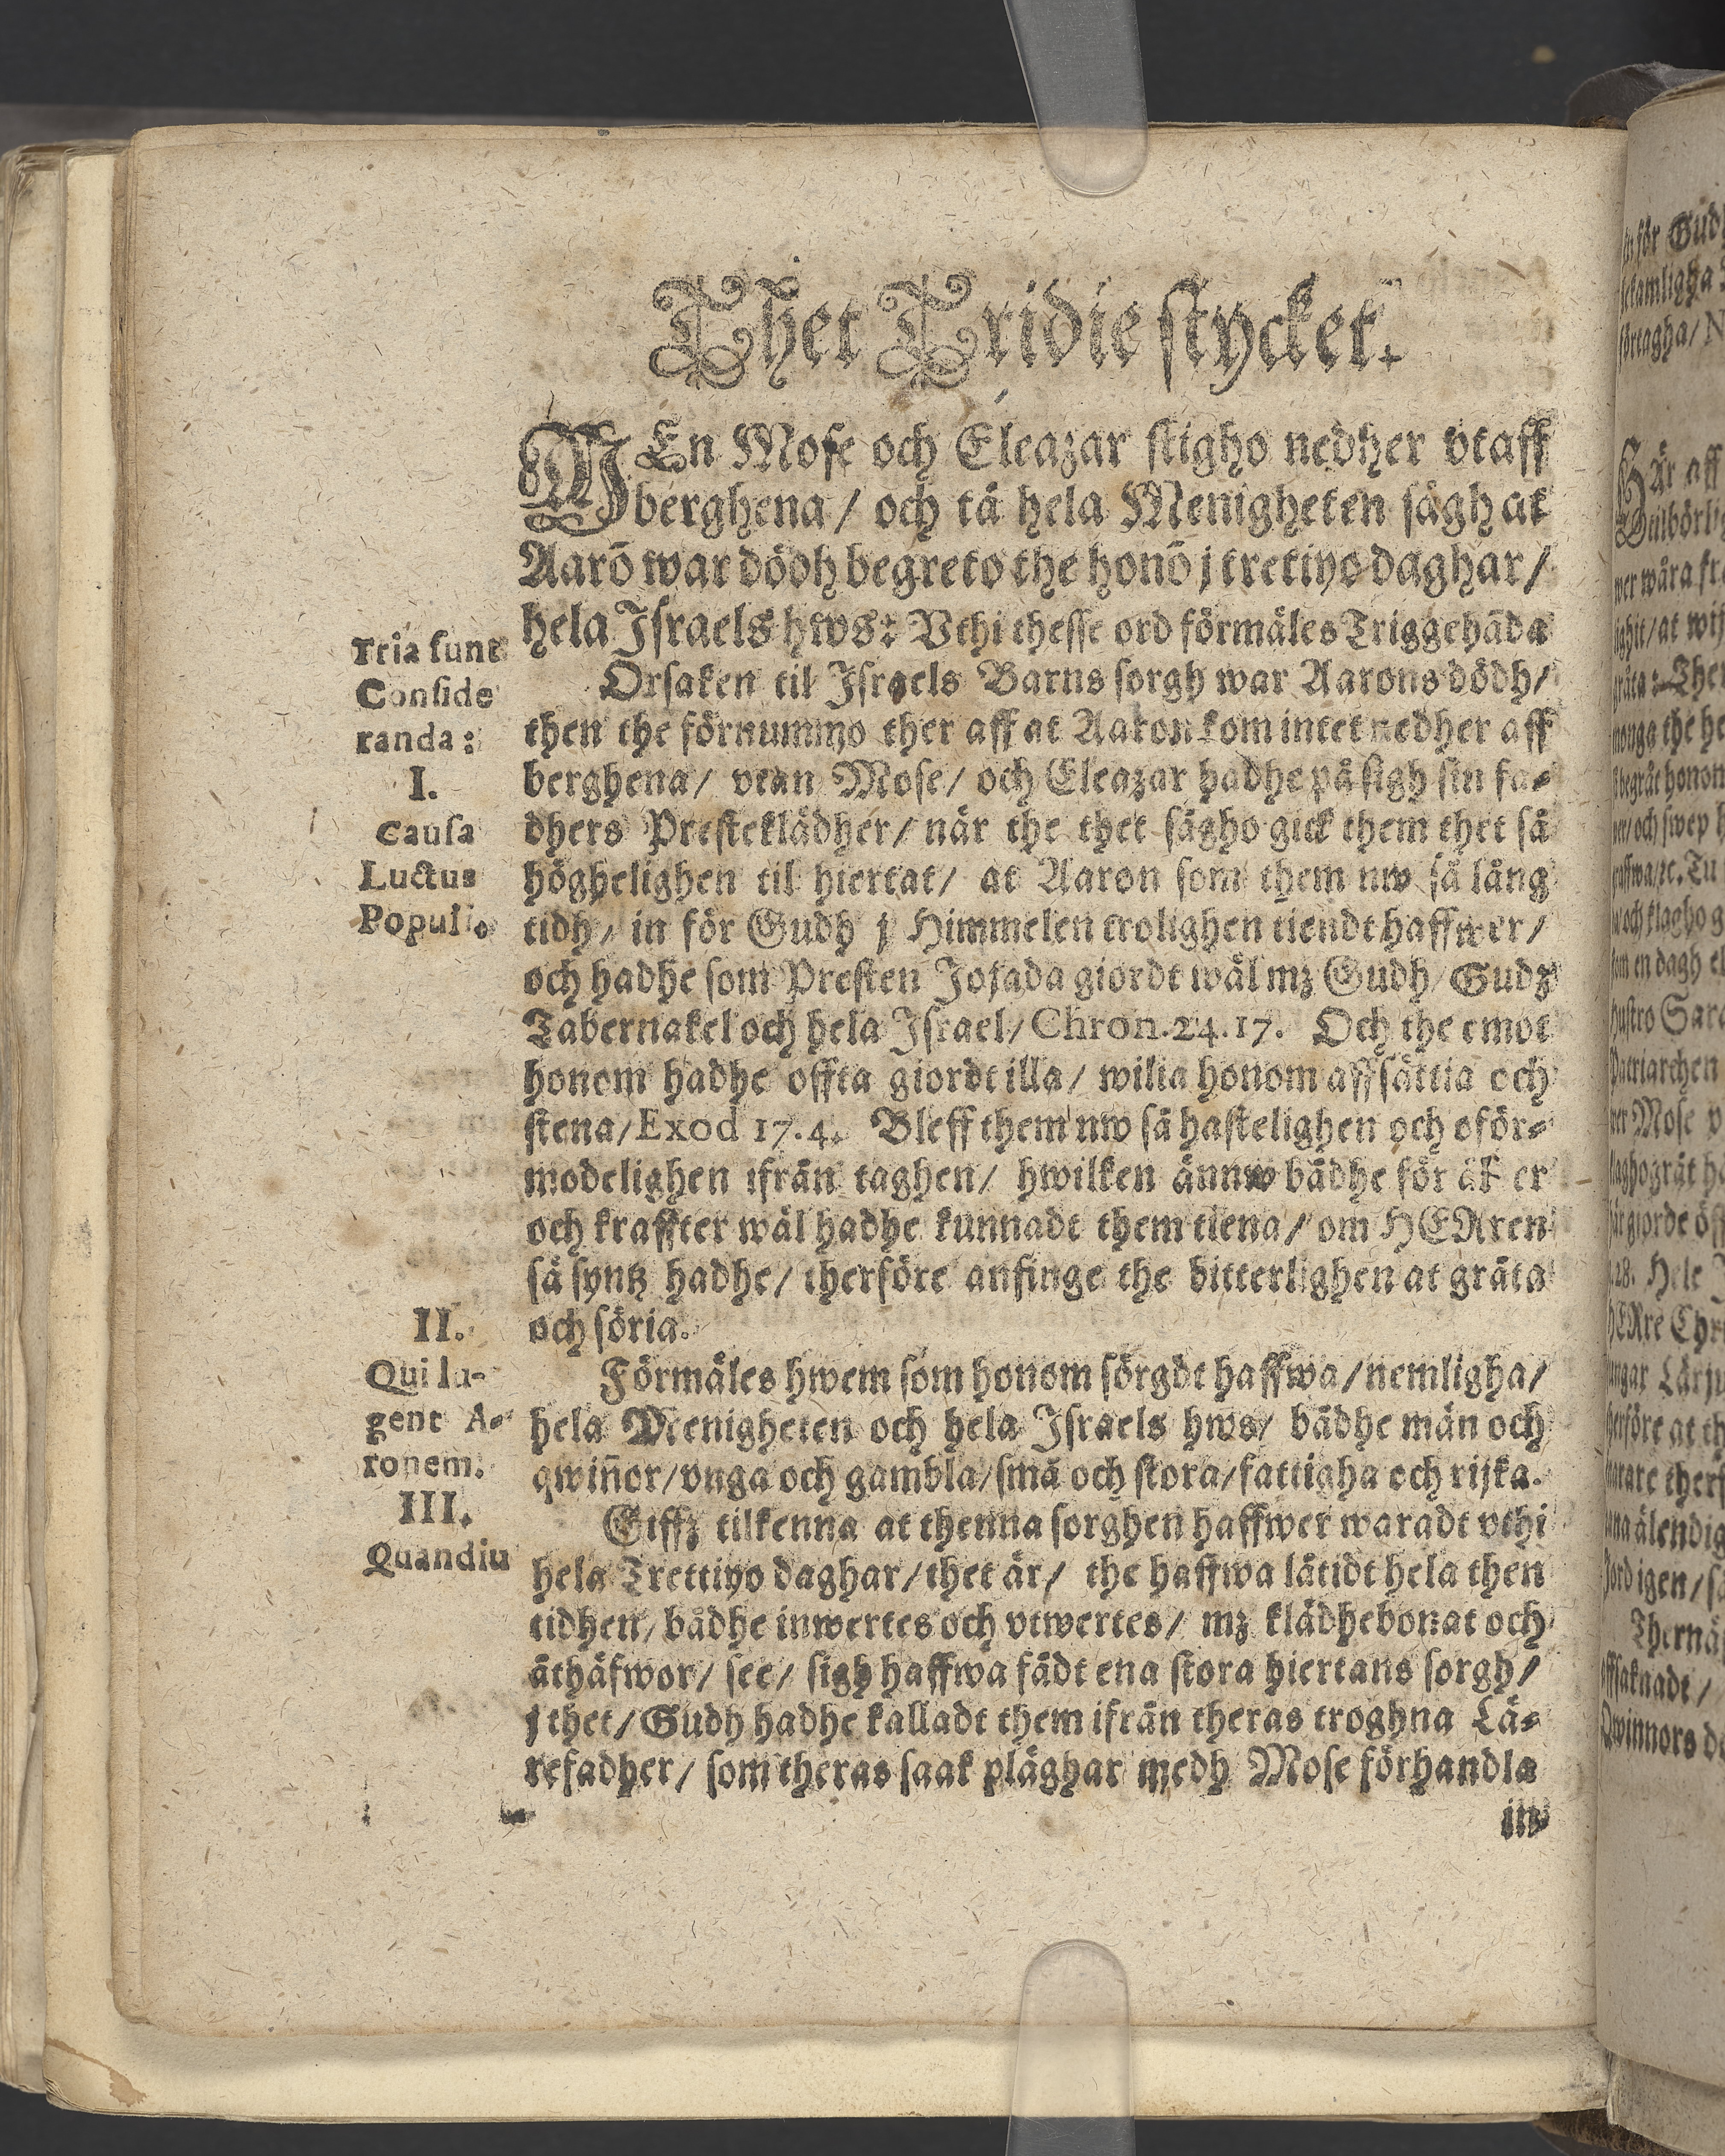 Thet Tridie stycket.
MEn Mose och Eleazar stigho nedher vtaff
berghena / och tå hela Menigheten sågh at
Aarō war dödh begreto the honō j tretiyo daghar /
hela Israels hws: Vthi thesse ord förmäles Triggehāda
Tria sunt
Conside
randa:
I.
Causa
Luctus
Populi.
Orsaken til Israels Barns sorgh war Aarons dödh /
then the förnummo ther aff at Aaron kom intet nedher aff
berghena / vtan Mose / och Eleazar hadhe på sigh sin fa-
dhers Presteklädher / når the thet sågho gick them thet så
höghelighen til hiertat / at Aaron som them nw så lång
tidh / in för Gudh j Himmelen trolighen tiendt haffwer /
och hadhe som Presten Jojada giordt wäl mz Gudh / Gudz
Tabernakel och hela Israel / Chron. 24. 17. Och the emot
honom hadhe offta giordt illa / wilia honom affsättia och
stena / Exod 17. 4. Bleff them nw så hastelighen och oför-
modelighen ifrån taghen / hwilken ännw bådhe för åk er
och kraffter wäl hadhe kunnadt them tiena / om HERren
så syntz hadhe / therföre anfinge the bitterlighen at gråta
och söria.
II.
Qui lu-
gent A-
ronem.
III.
Quandiu
Förmäles hwem som honom sörgdt haffwa / nemligha /
hela Menigheten och hela Israels hws / bådhe mån och
qwiñor / vnga och gambla / små och stora / fattigha och rijka.
Giffz tilkenna at thenna sorghen haffwer waradt vthi
hela Trettiyo daghar / thet är / the haffwa låtidt hela then
tidhen / bådhe inwertes och vtwertes / mz klädhebonat och
åthäfwor / see / sigh haffwa fådt ena stora hiertans sorgh /
j thet / Gudh hadhe kalladt them ifrån theras troghna Lä-
refadher / som theras saak plåghar medh Mose förhandla
in